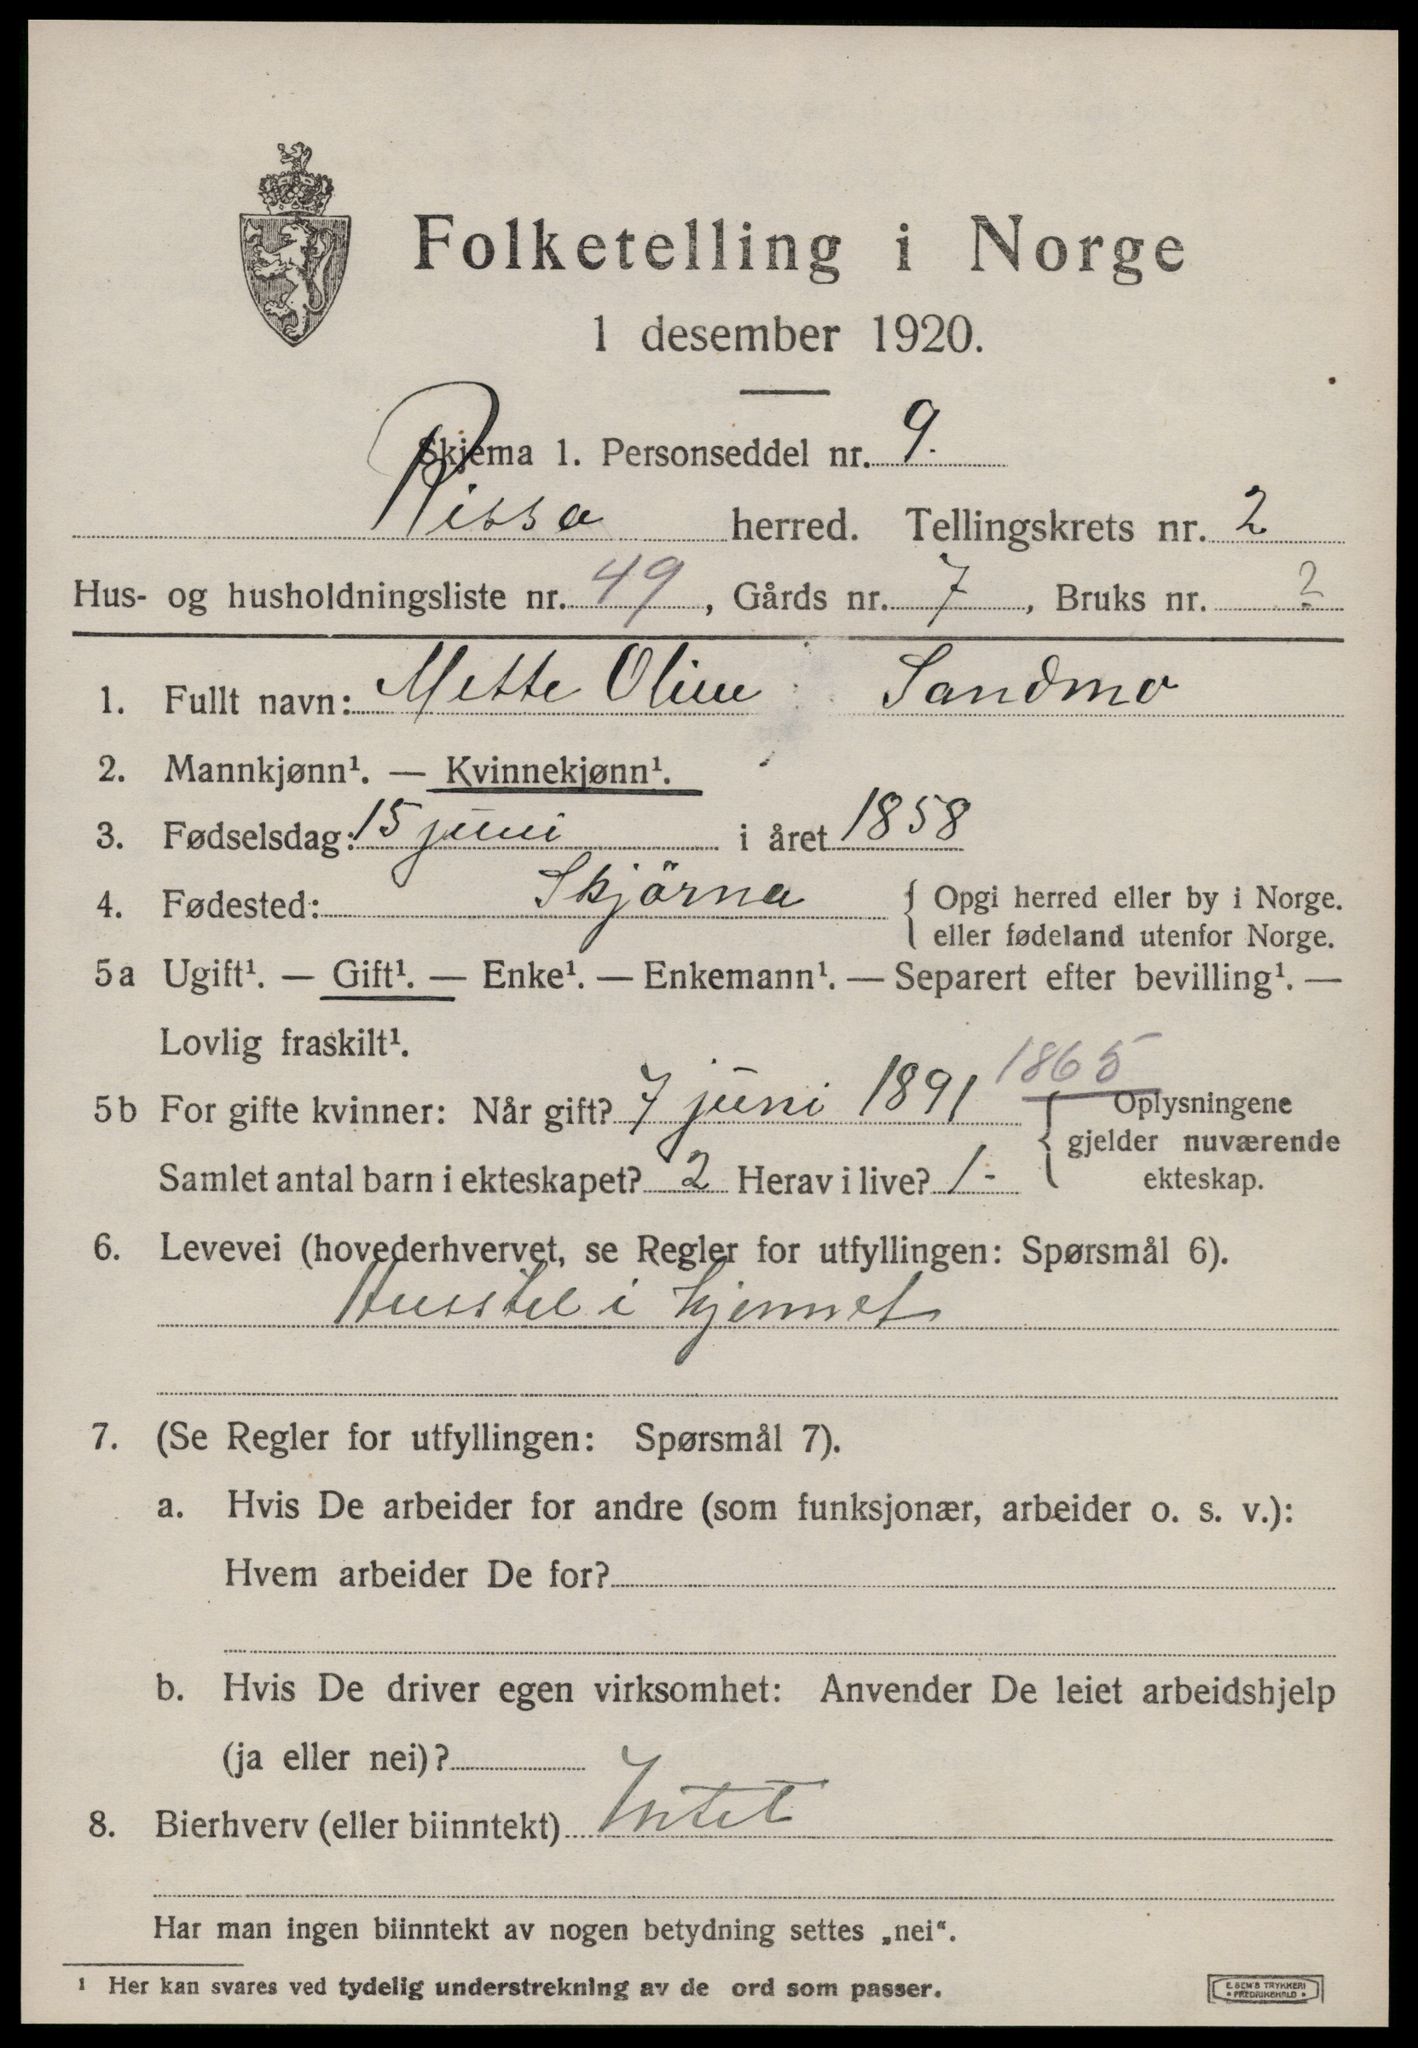 Folketelling i Norge
1 desember 1920.
Skjema 1. Personseddel nr. 9.
Rissa herred. Tellingskrets nr. 2
Hus- og husholdningsliste nr. 49, Gårds nr. 7, Bruks nr. 2
1. Fullt navn: Mette Oline Sandmo
2. Mannkjønn¹. — Kvinnekjønn¹.
3. Fødselsdag: 15 juni i året 1858
4. Fødested: Skjörna { Opgi herred eller by i Norge.
eller fødeland utenfor Norge.
5a Ugift¹. — Gift¹. — Enke¹. — Enkemann¹. — Separert efter bevilling¹. —
Lovlig fraskilt¹.
1865
5b For gifte kvinner: Når gift? 7 juni 1891 { Oplysningene
gjelder nuværende
Samlet antal barn i ekteskapet? 2 Herav i live? 1- ekteskap.
6. Levevei (hovederhvervet, se Regler for utfyllingen: Spørsmål 6).
Husstel i hjemmet
7. (Se Regler for utfyllingen: Spørsmål 7).
a. Hvis De arbeider for andre (som funksjonær, arbeider o. s. v.):
Hvem arbeider De for?
b. Hvis De driver egen virksomhet: Anvender De leiet arbeidshjelp
(ja eller nei)?
8. Bierhverv (eller biinntekt) Intet
Har man ingen biinntekt av nogen betydning settes „nei“.
¹ Her kan svares ved tydelig understrekning av de ord som passer.
E. SEM'S TRYKKERI
• FREDRIKSHALD •